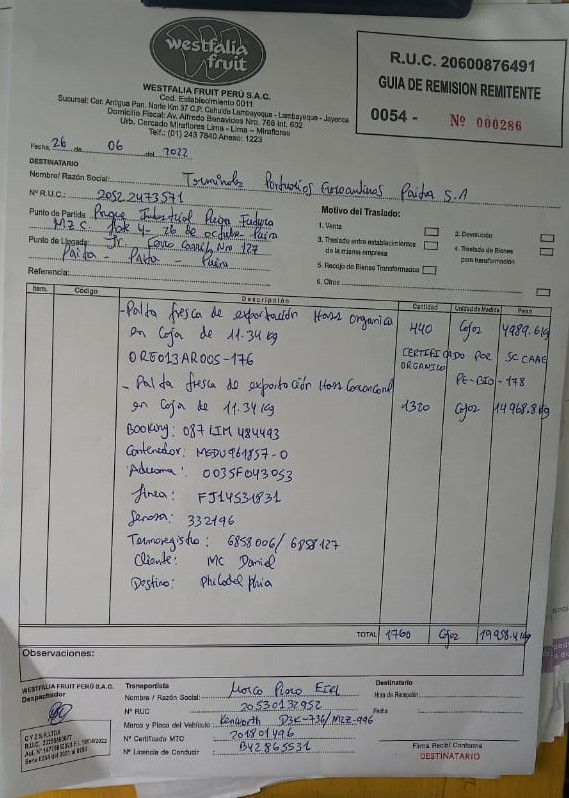 westfalia
fruit
WESTFALIA FRUIT PERÚ S.A.C.
Cod. Establecimiento 0011
Sucursal: Car. Antigua Pan. Norte Km 37 C.P. Cahuide Lambayeque - Lambayeque - Jayanca
Domicilio Fiscal: Av. Alfredo Benavides Nro. 768 Int. 602
Urb. Cercado Miraflores Lima - Lima - Miraflores
Telf.: (01) 243 7840 Anexo: 1223
R.U.C. 20600876491
GUIA DE REMISION REMITENTE
0054 - Nº 000286
Fecha, 26 de 06 del 2022
DESTINATARIO
Nombre/ Razón Social: Terminales Portuarios Euroandinos Paita S.A
Nº R.U.C.: 20522473571
Punto de Partida Parque Industrial Piura Futura
MZ C. Lote 4- 26 de octubre Piura
Punto de Llegada: Jr. Ferro Carril Nro 127
Paita - Paita - Piura
Referencia:
Motivo del Traslado:
1. Venta
2. Devolución
3. Traslado entre establecimientos de la misma empresa
4. Traslado de Bienes para transformación
5. Recojo de Bienes Transformados
6. Otros
Item. Código Descripción Cantidad Unidad de Medida Peso
- Palta fresca de exportación Hass Organica
en Caja de 11.34 kg 440 Cajaz 4989.6 kg
ORG013AR00S-176 CERTIFICADO POR SC CAAE
ORGANICO PE-BIO-178
- Palta fresca de exportación Hass Convencional
en Caja de 11.34 kg 1320 Cajaz 14968.8 kg
Booking: 087LIM484493
Contenedor: MSDU961857-0
Aduana: 0035F043053
linea: FJ14531831
Senasa: 332196
Termoregistro: 6858006/ 6858127
Cliente: MC Daniel
Destino: Philadelphia
TOTAL 1760 Cajaz 19958.4 kg
Observaciones:
WESTFALIA FRUIT PERÚ S.A.C.
Despachador
Transportista
Nombre / Razón Social: Marco Piero
Nº RUC 20530132952
Marca y Placa del Vehículo: Kenworth D3K-736/MZZ-996
Nº Certificado MTC 201801496
Nº Licencia de Conducir B42865531
Destinatario
Hora de Recepción:
Fecha
Firma Recibí Conforme
DESTINATARIO